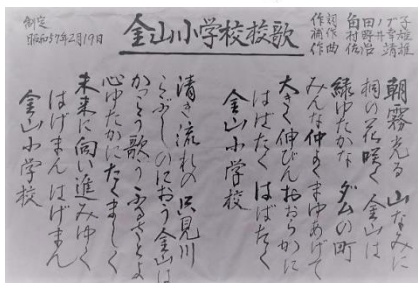 金山小学校校歌
制定
昭和57年2月19日
作詞
補作
作曲
朝霧光る 山なみに
桐の花咲く 金山は
緑ゆたかな ダムの町
みんな仲よくまゆあげて
大きく伸びんおおらかに
はばたく はばたく
金山小学校
清き流れの 只見川
こぶしのにおう金山は
かっこう歌うふるさとよ
心ゆたかにたくましく
未来に向い進みゆく
はげまん はげまん
金山小学校